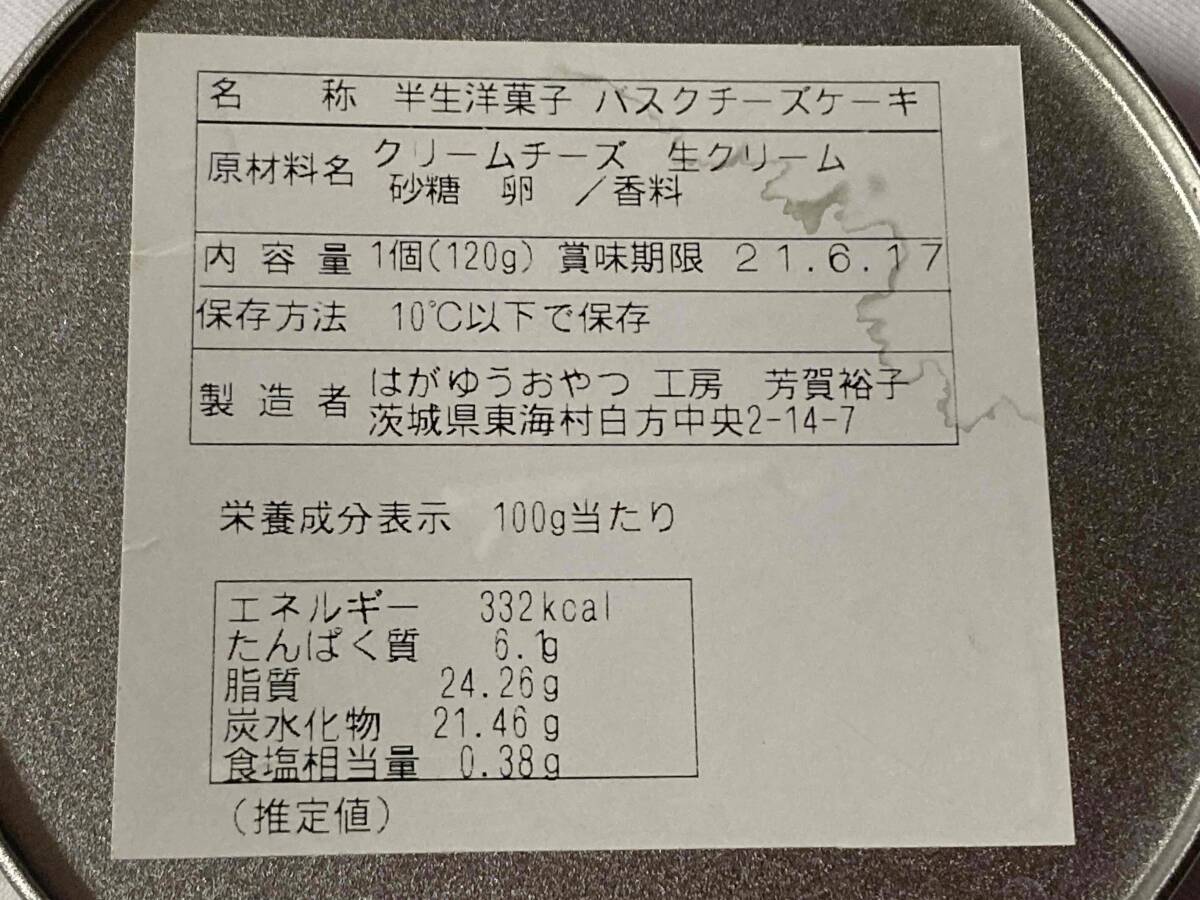 名称 半生洋菓子 バスクチーズケーキ
原材料名 クリームチーズ 生クリーム
砂糖 卵 /香料
内容量 1個(120g) 賞味期限 21.6.17
保存方法 10℃以下で保存
製造者 はがゆうおやつ工房 芳賀裕子
茨城県東海村白方中央2-14-7
栄養成分表示 100g当たり
エネルギー 332kcal
たんぱく質 6.1g
脂質 24.26g
炭水化物 21.46g
食塩相当量 0.38g
(推定値)